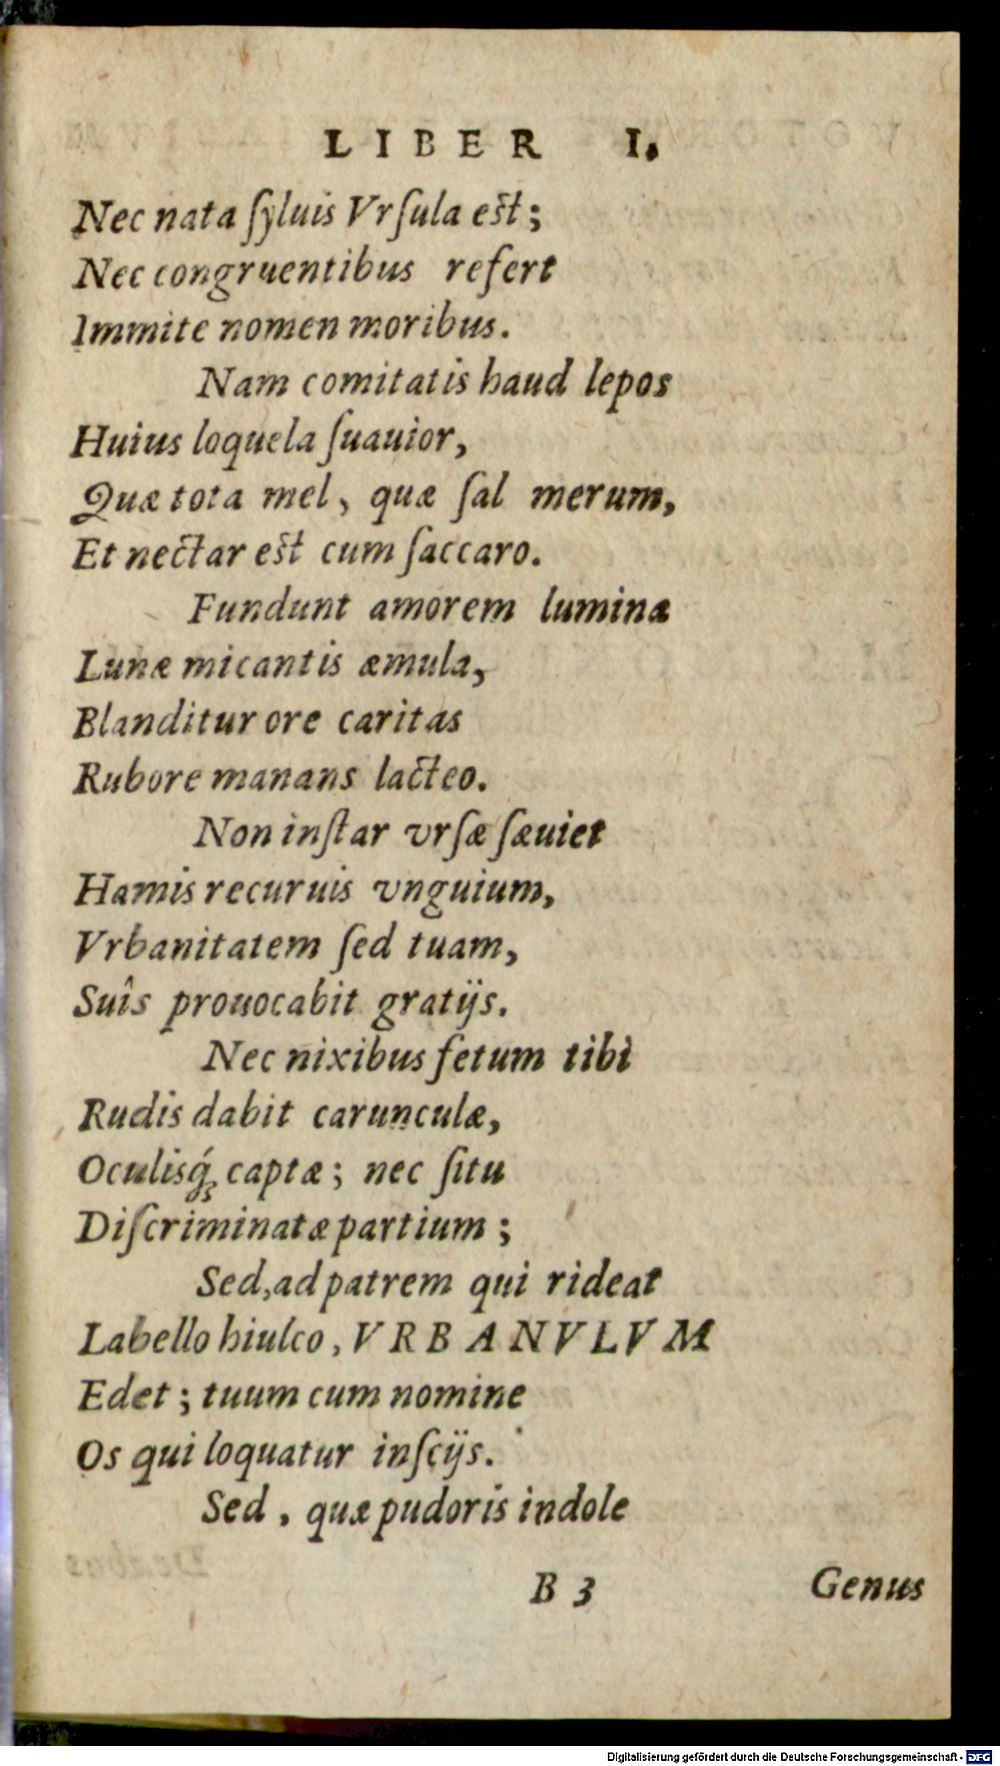 LIBER I.
Nec nata ſyluis Vrſula eſt;
Nec congruentibus refert
Immite nomen moribus.
Nam comitatis haud lepos
Huius loquela ſuauior,
Quæ tota mel, quæ ſal merum,
Et nectar eſt cum ſaccaro.
Fundunt amorem lumina
Lunæ micantis æmula,
Blanditur ore caritas
Rubore manans lacteo.
Non inſtar vrſæ ſæuiet
Hamis recuruis vnguium,
Vrbanitatem ſed tuam,
Suîs prouocabit gratijs.
Nec nixibus fetum tibi
Rudis dabit carunculæ,
Oculisq́ꝫ captæ; nec ſitu
Diſcriminatæ partium;
Sed, ad patrem qui rideat
Labello hiulco, VRBANVLVM
Edet; tuum cum nomine
Os qui loquatur inſcijs.
Sed, quæ pudoris indole
B 3 Genus
Digitalisierung gefördert durch die Deutsche Forschungsgemeinschaft - DFG